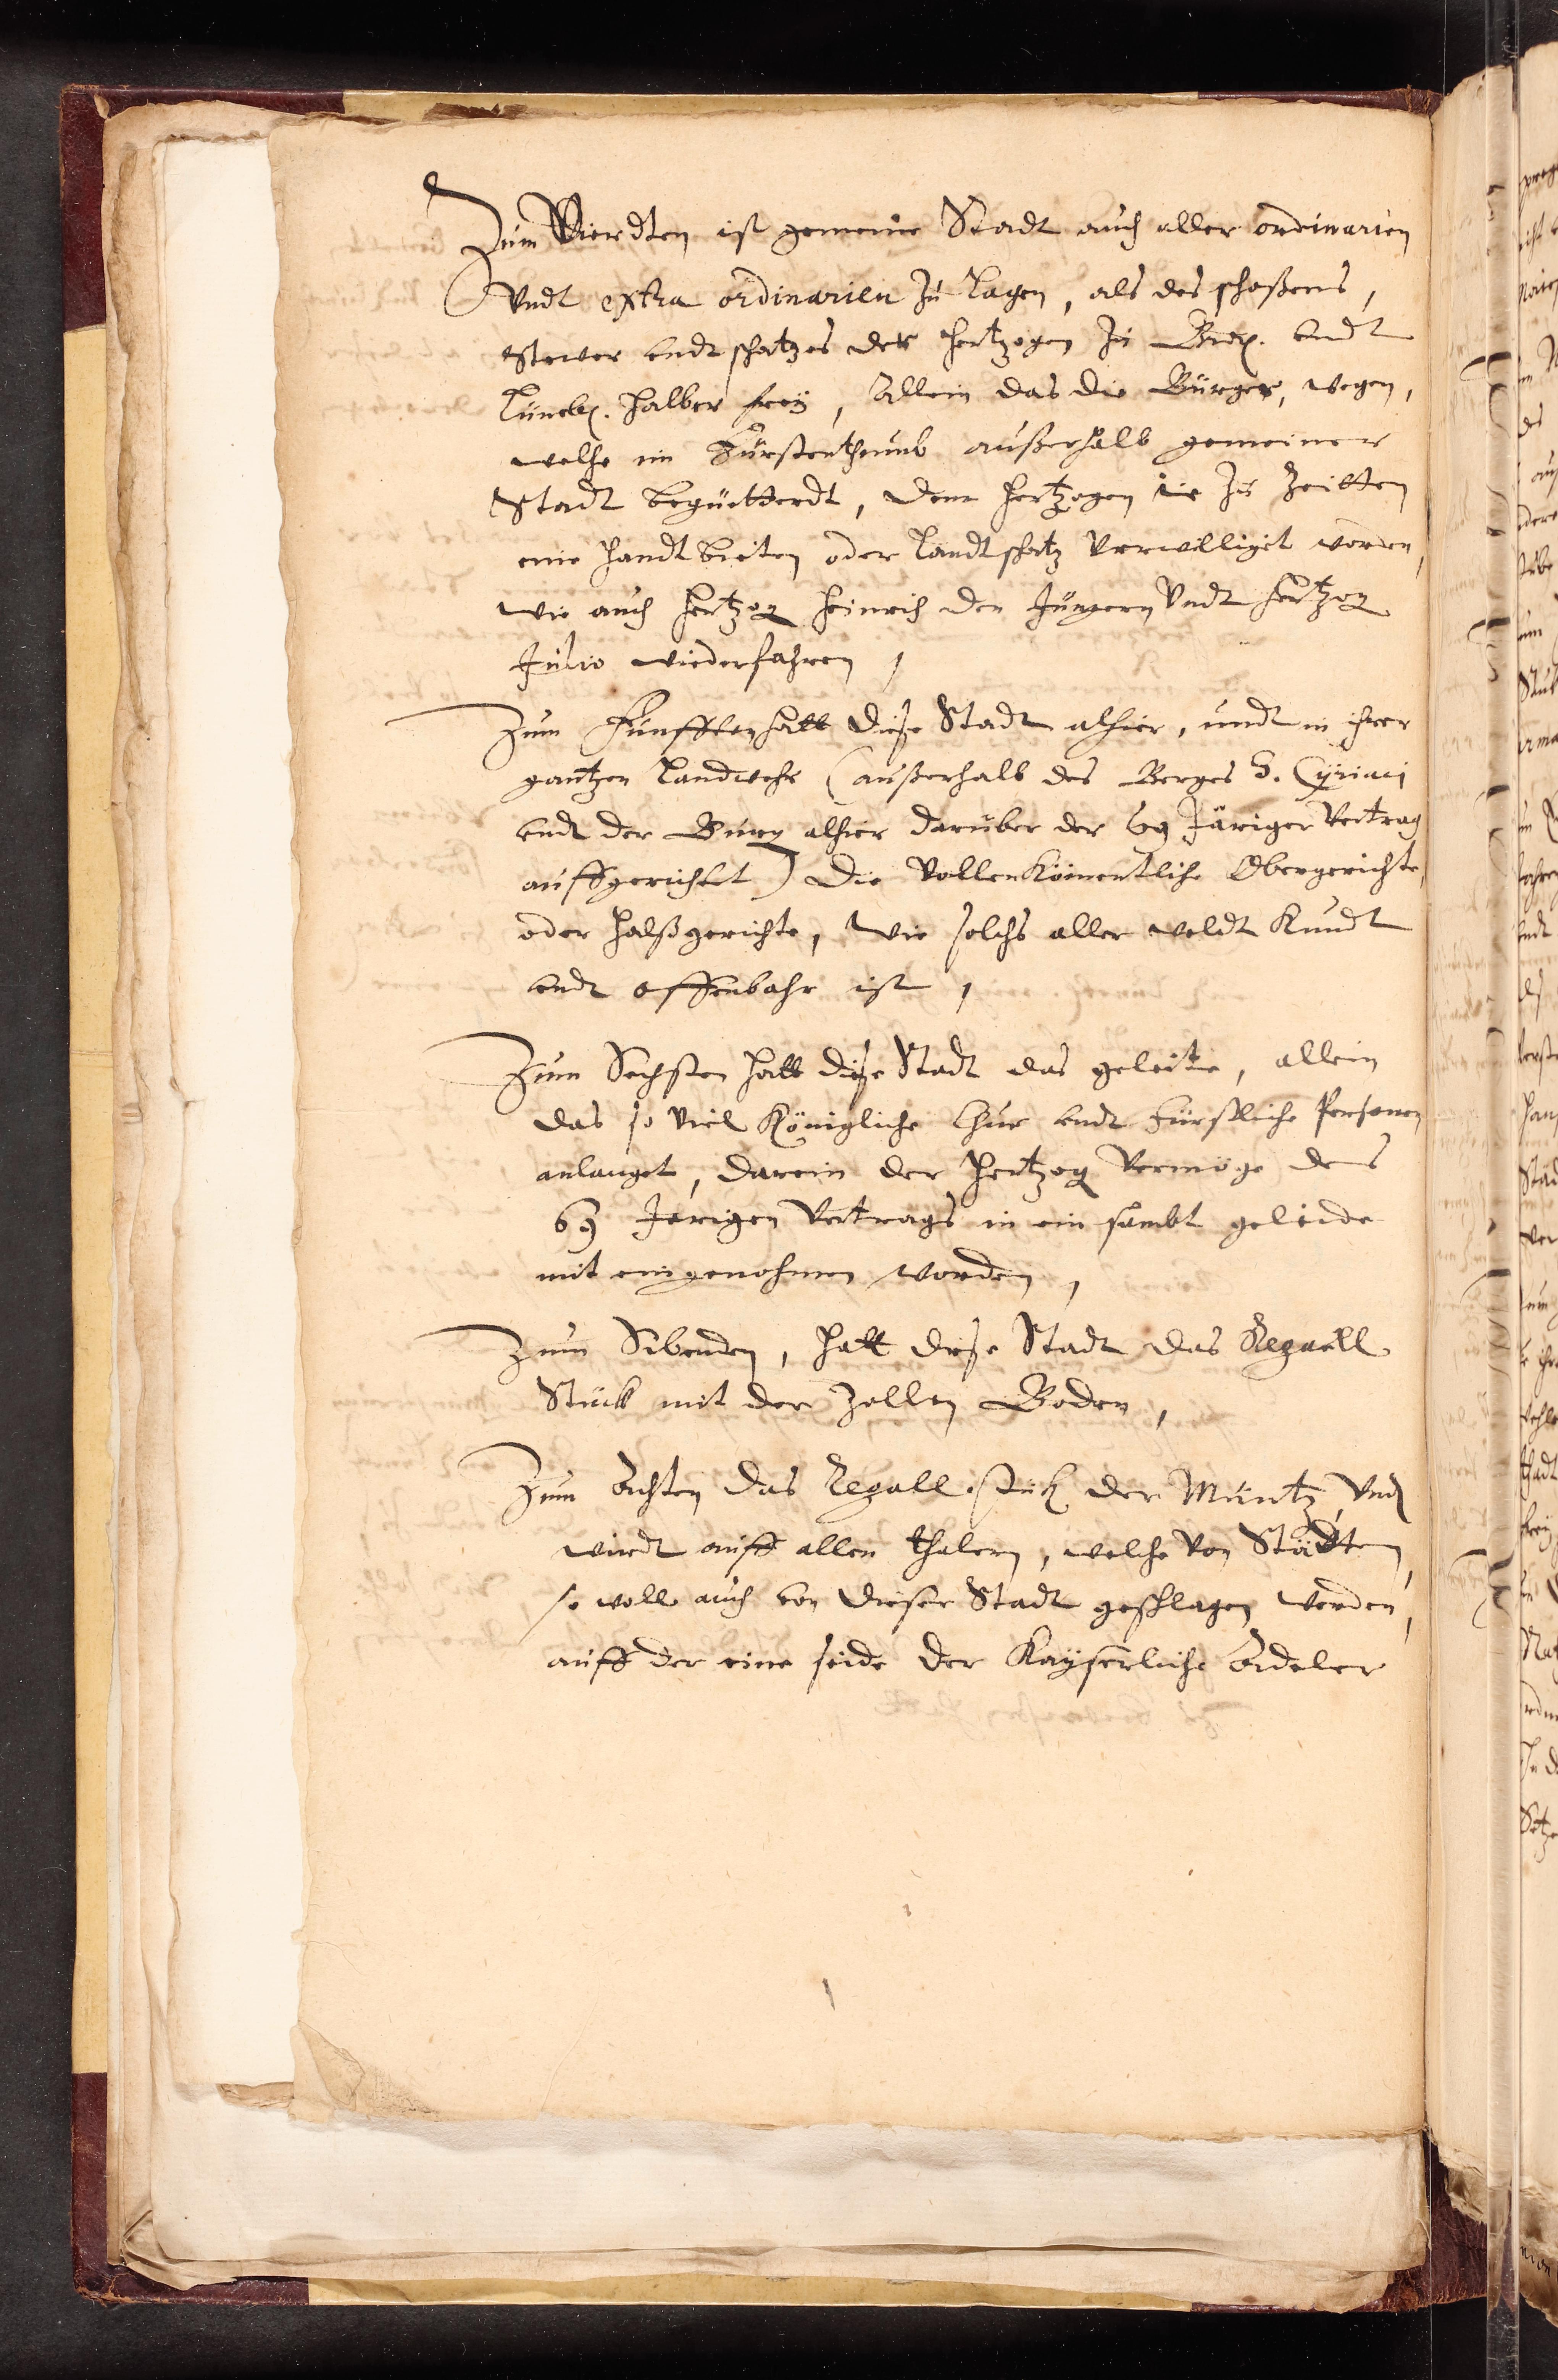 Zum Vierdten ist gemeine Stadt auch aller ordinarien
Undt extra ordinarien zu lagen, als des schoßens,
stewer undt schatzes der Hertzogen zu Br. undt
Lüneb. halber frey, Allein das die Bürger, wegen,
welche im Fürstenthumb außerhalb gemeiner
Stadt begüetterdt, dem Hertzogen zu Zeitten
eine Handt bieten oder Landtschatz verwilliget worden,
wie auch Hertzog Heinrich den Jüngern Undt Hertzog
Julio wiederfahren,
Zum Fünfften hatt diese Stadt alhier, undt in ihrer
gantzen Landwehr (außerhalb des Berges S. Cyriaci
undt der Burg alhier darüber der 69 Järiger Vertrag
auffgerichtet) die vollenkömentliche Obergerichte,
oder Halßgerichte, wie solchs aller weldt kundt
undt offenbahr ist,
Zum Sechsten hatt diese Stadt das geleite, allein
das so viel Königliche Chur undt Fürstliche Personen
anlanget, darein der Hertzog vermöge des
69 Jerigen Vertrags in ein sambt geleide
mit eingenohmen worden,
Zum Sibenden, hatt diese Stadt das Regall
Stück mit der Zollen Boden,
Zum Achten das Regall stück der Müntz, Und
wirdt auff allen thalern, welche von Städten,
so woll auch von dieser Stadt geschlagen werden,
auff der eine seide der Kayserliche Adeler